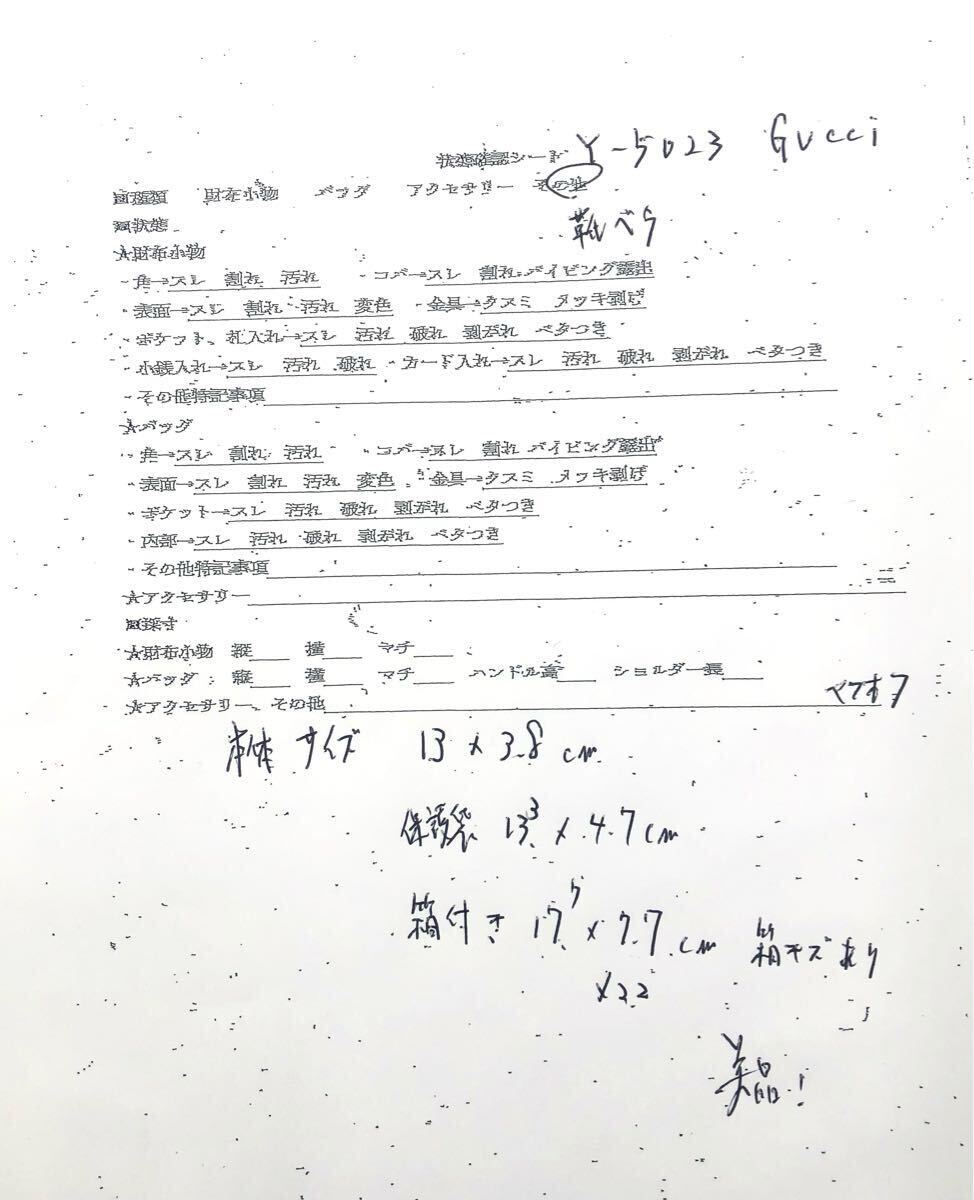 状態確認シート Y-5023 Gucci
回種類 財布小物 バッグ アクセサリー その他
靴べラ
回状態
☆財布小物
・角→スレ 割れ 汚れ ・コバ→スレ 割れ パイピング露出
・表面→スレ 割れ 汚れ 変色 ・金具→クスミ メッキ剥げ
・ポケット、札入れ→スレ 汚れ 破れ 剥がれ ベタつき
・小銭入れ→スレ 汚れ 破れ ・カード入れ→スレ 汚れ 破れ 剥がれ ベタつき
・その他特記事項
☆バッグ
・角→スレ 割れ 汚れ ・コバ→スレ 割れ パイピング露出
・表面→スレ 割れ 汚れ 変色 ・金具→クスミ メッキ剥げ
・ポケット→スレ 汚れ 破れ 剥がれ ベタつき
・内部→スレ 汚れ 破れ 剥がれ ベタつき
・その他特記事項
☆アクセサリー
回採寸
☆財布小物 縦 横 マチ
☆バッグ: 縦 横 マチ ハンドル高 ショルダー長
☆アクセサリー、その他
本体 サイズ 13 × 3.8 cm
保護袋 13.3 × 4.7 cm
箱付き 17.5 × 7.7 cm 箱キズあり
×2.2
美品!